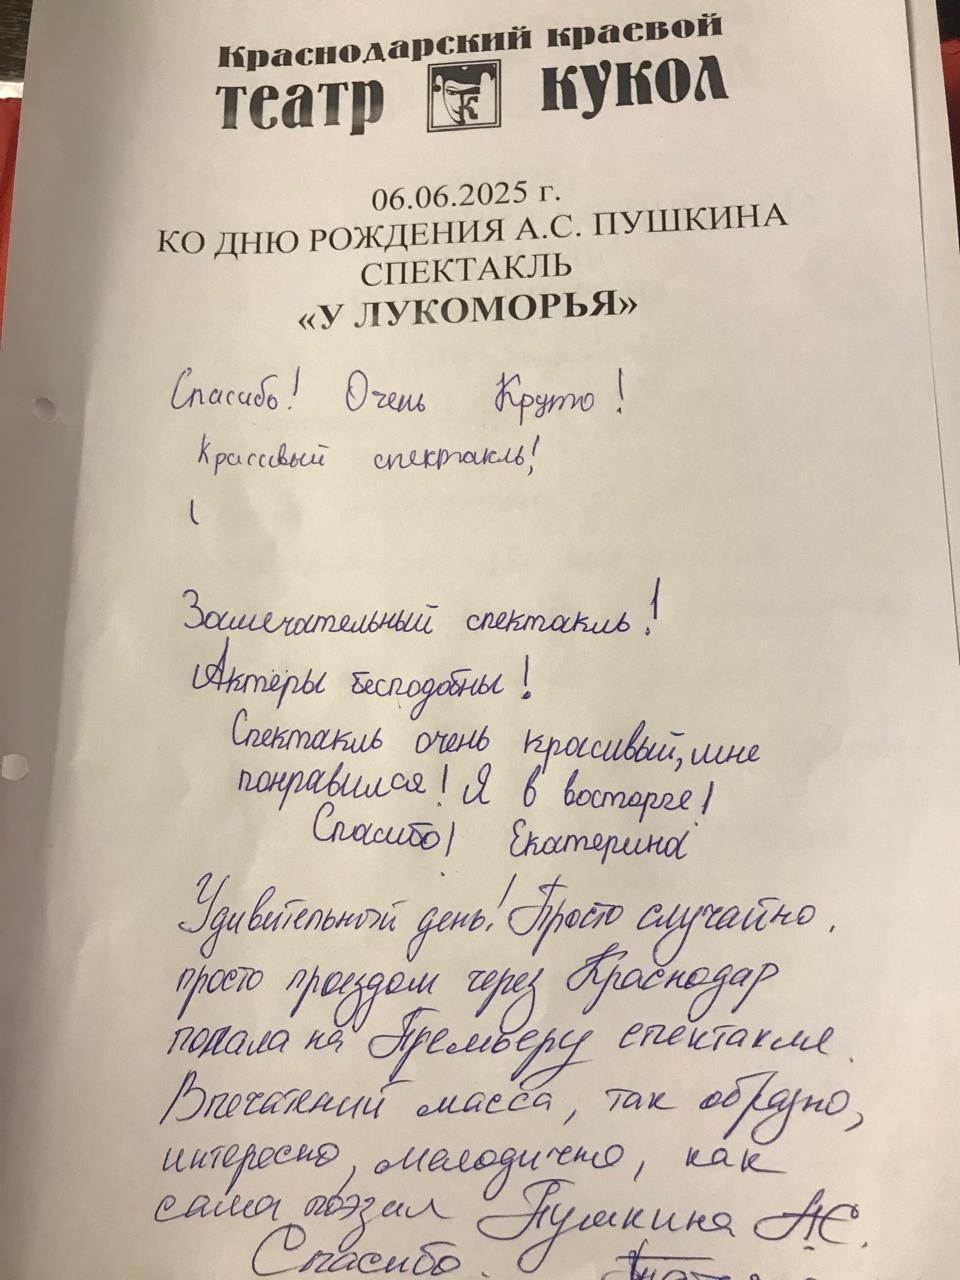 Краснодарский краевой
театр К кукол
06.06.2025 г.
КО ДНЮ РОЖДЕНИЯ А.С. ПУШКИНА
СПЕКТАКЛЬ
«У ЛУКОМОРЬЯ»
Спасибо! Очень Круто!
Красивый спектакль!
Замечательный спектакль!
Актёры бесподобны!
Спектакль очень красивый, мне
понравился! Я в восторге!
Спасибо! Екатерина
Удивительный день! Просто случайно,
просто проездом через Краснодар
попала на Премьеру спектакля.
Впечатлений масса, так образно,
интересно, мелодично, как
сама поэзия Пушкина АС.
Спасибо.